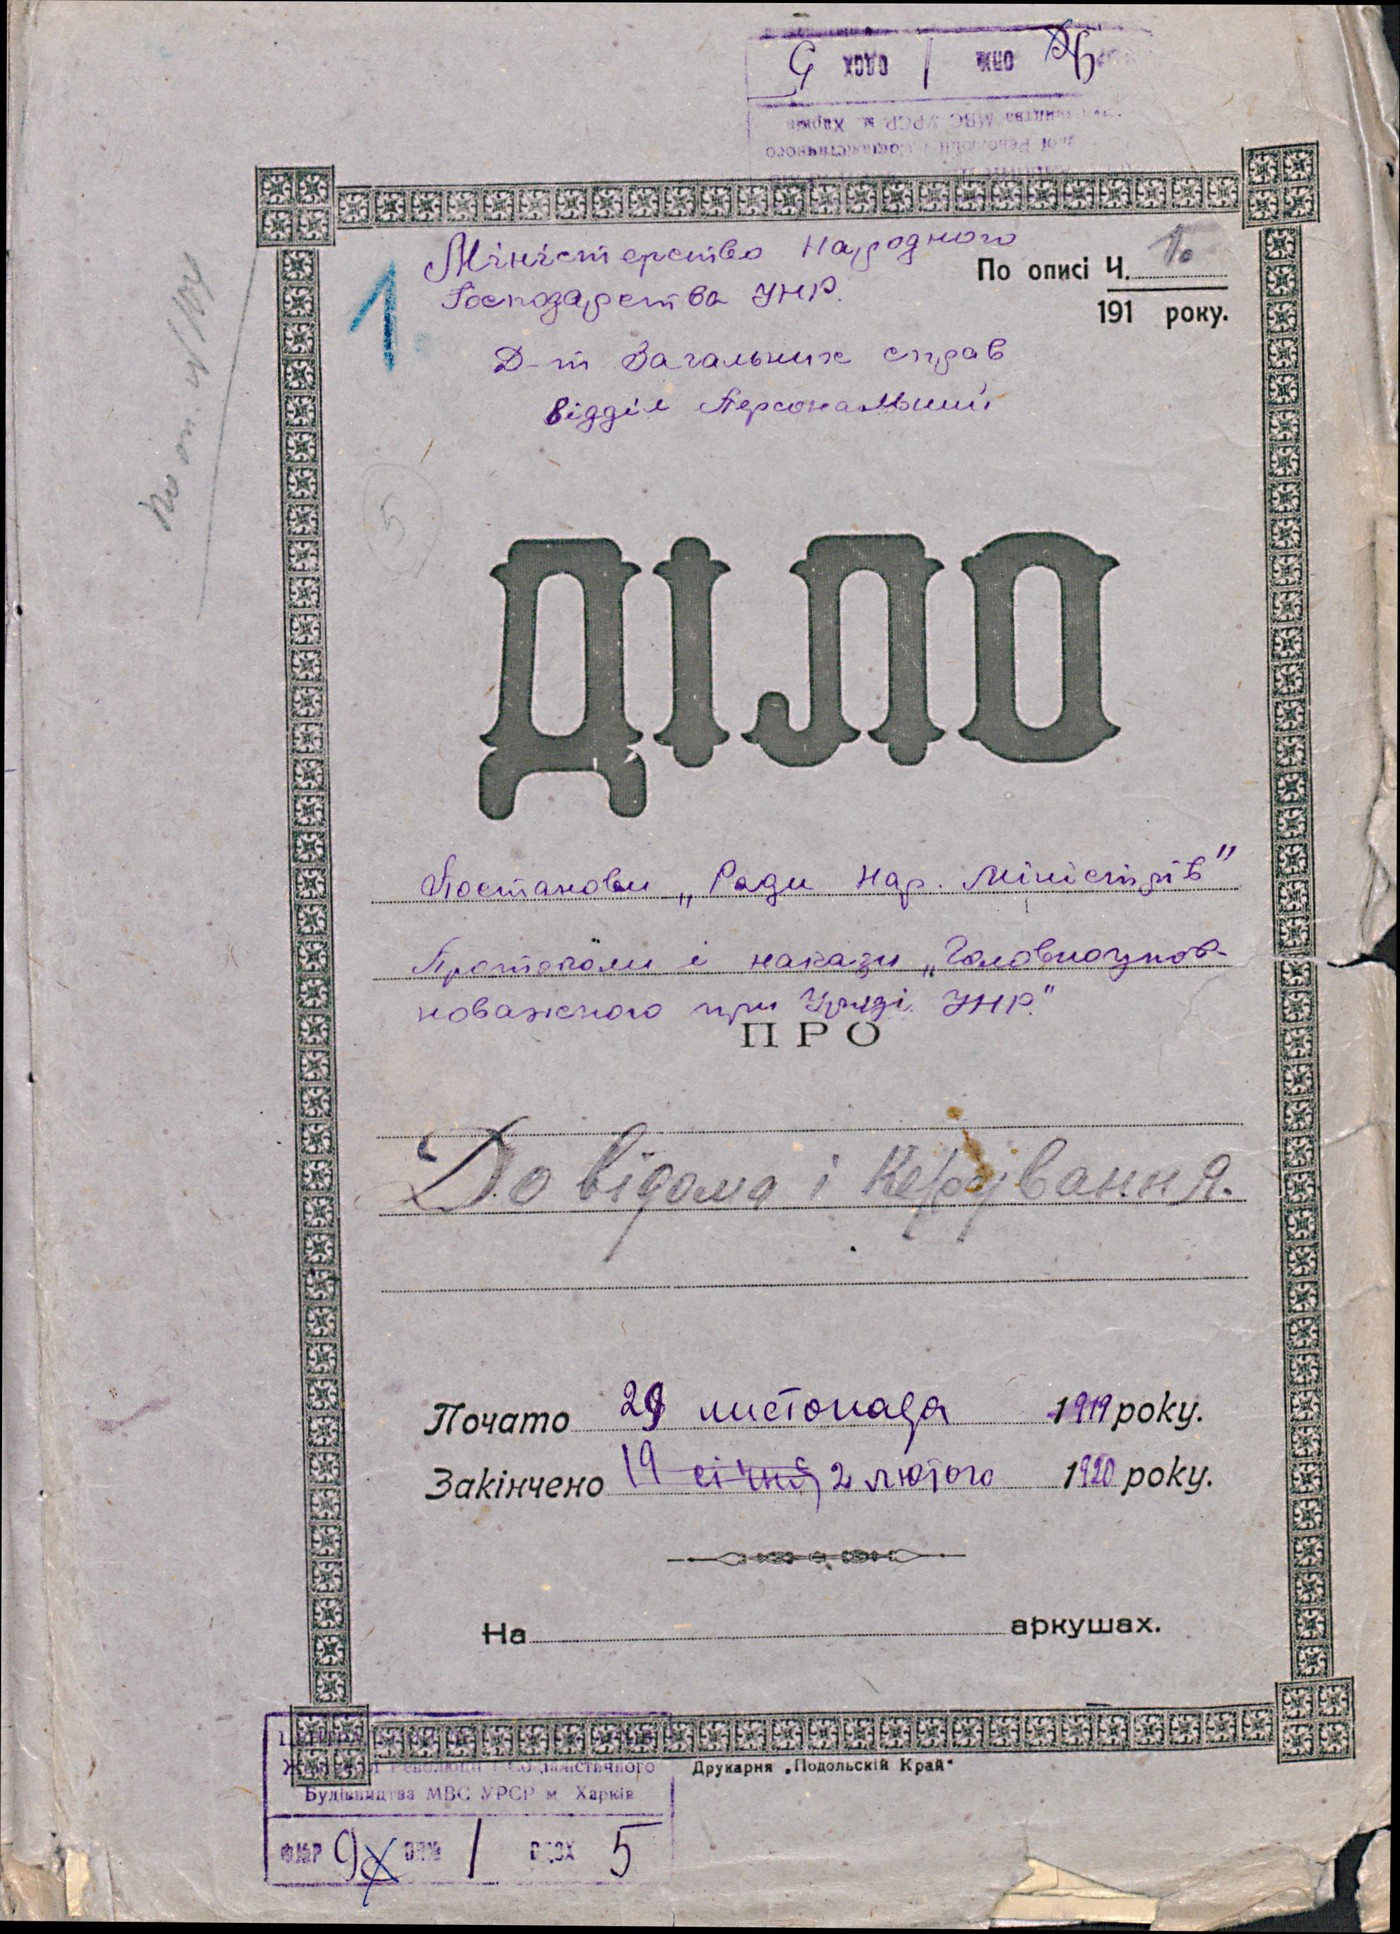 ОДСХ 5
ОПИС 1
Будівництва МВС УРСР м. Харків
Жовтневої Революції і Соціалістичного
Міністерство Народного
Господарства УНР.
По описі Ч. 1.
191 року.
1.
Д-т Загальних справ
Відділ Персональний
5
ДІЛО
Постанови „Ради Нар. Міністрів"
Протоколи і накази „Головноупов-
новаженого при Уряді УНР."
ПРО
До відома і керування.
Почато 29 листопада 1919 року.
Закінчено 19 січня, 2 лютого 1920 року.
На аркушах.
Друкарня „Подольскій Край"
Жовтневої Революції і Соціалістичного
Будівництва МВС УРСР м. Харків
1 5